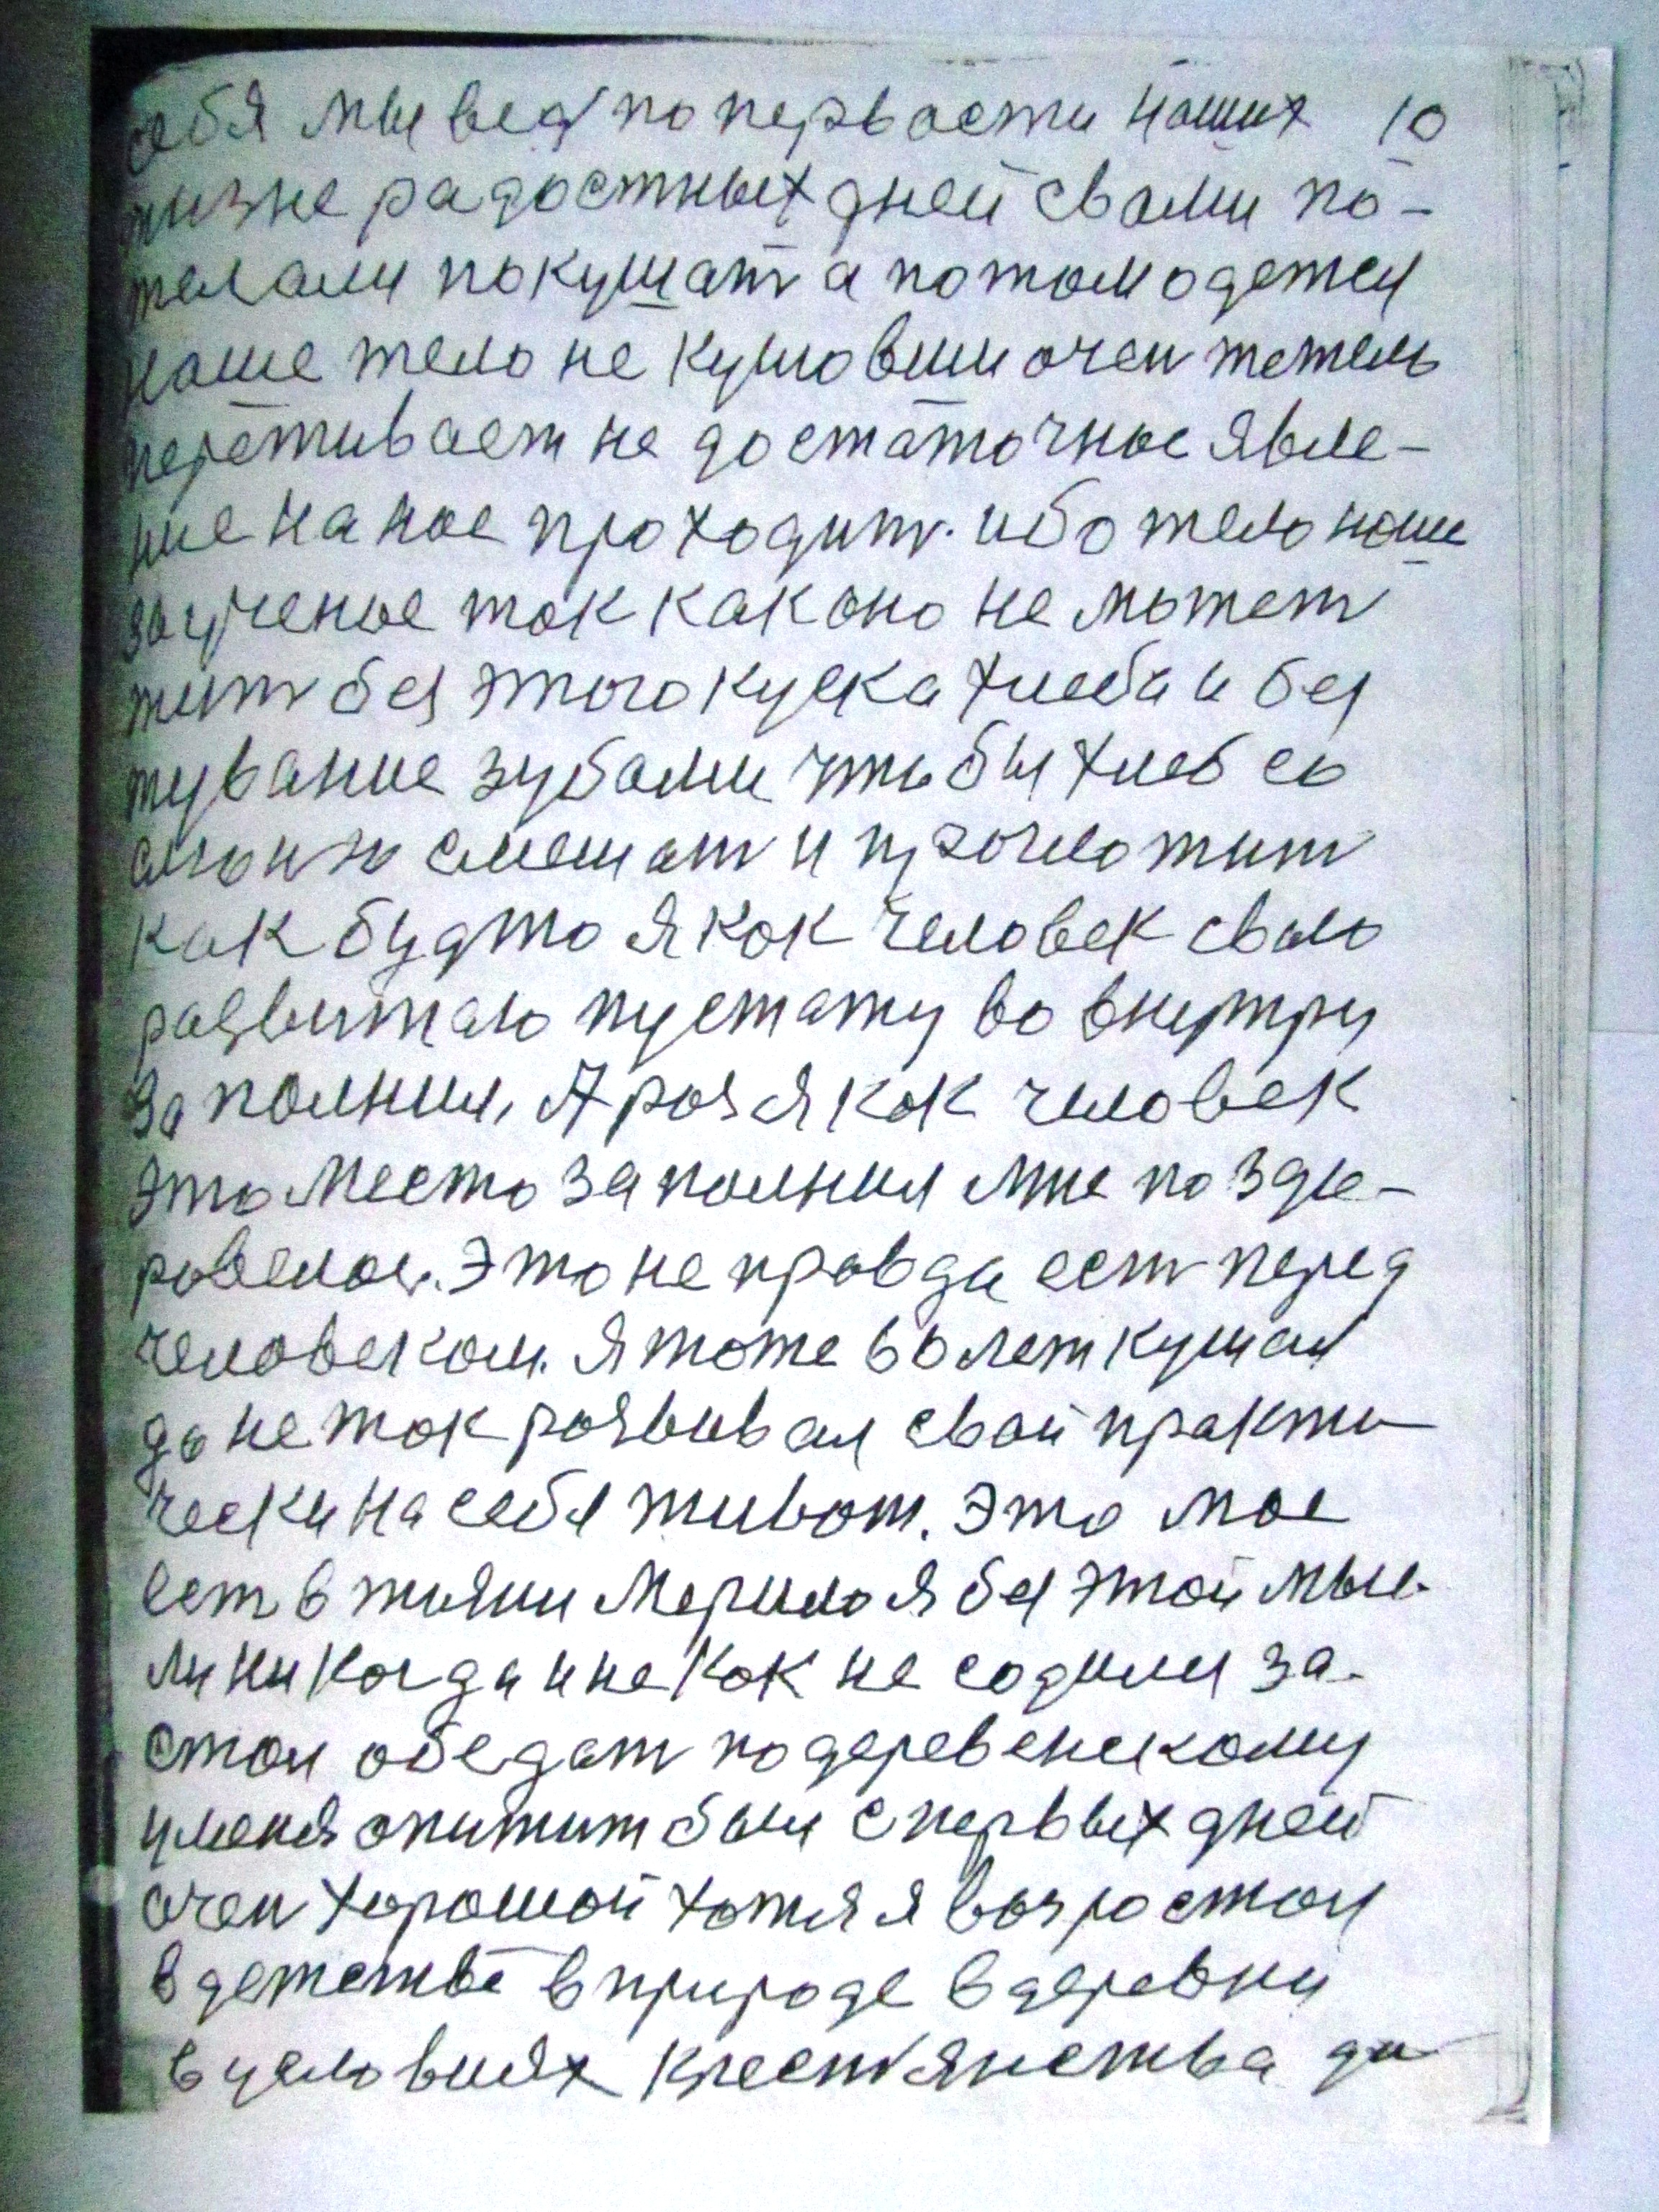 себя мы ведь по первасти наших 10
жизне радостных дней свами по-
желали покушат а потом одется
наше тело не кушовши очен тежело
переживает не достаточное явле-
ние на ное проходит. ибо тело наше
заученое так как оно не может
жит без этого куска хлеба и без
жувание зубами что бы хлеб со
слюнью смешат и проглотит
как будто я как человек сваю
развитаю пустату во внутру
заполнил, А раз я как человек
это место заполнил мне по здо-
ровелос. Это не правда ест перед
человеком. Я тоже 60 лет кушал
да не так развивал свой практи-
чески на себя живот. Это мое
ест в жизни мерило я без этой мыс-
ли ни когда и не как не содилс за-
стол обедат по деревенскому
у меня опитит был с первых дней
очен хорошой хотя я возростал
в детстве в природе в деревни
в условиях крестянства да